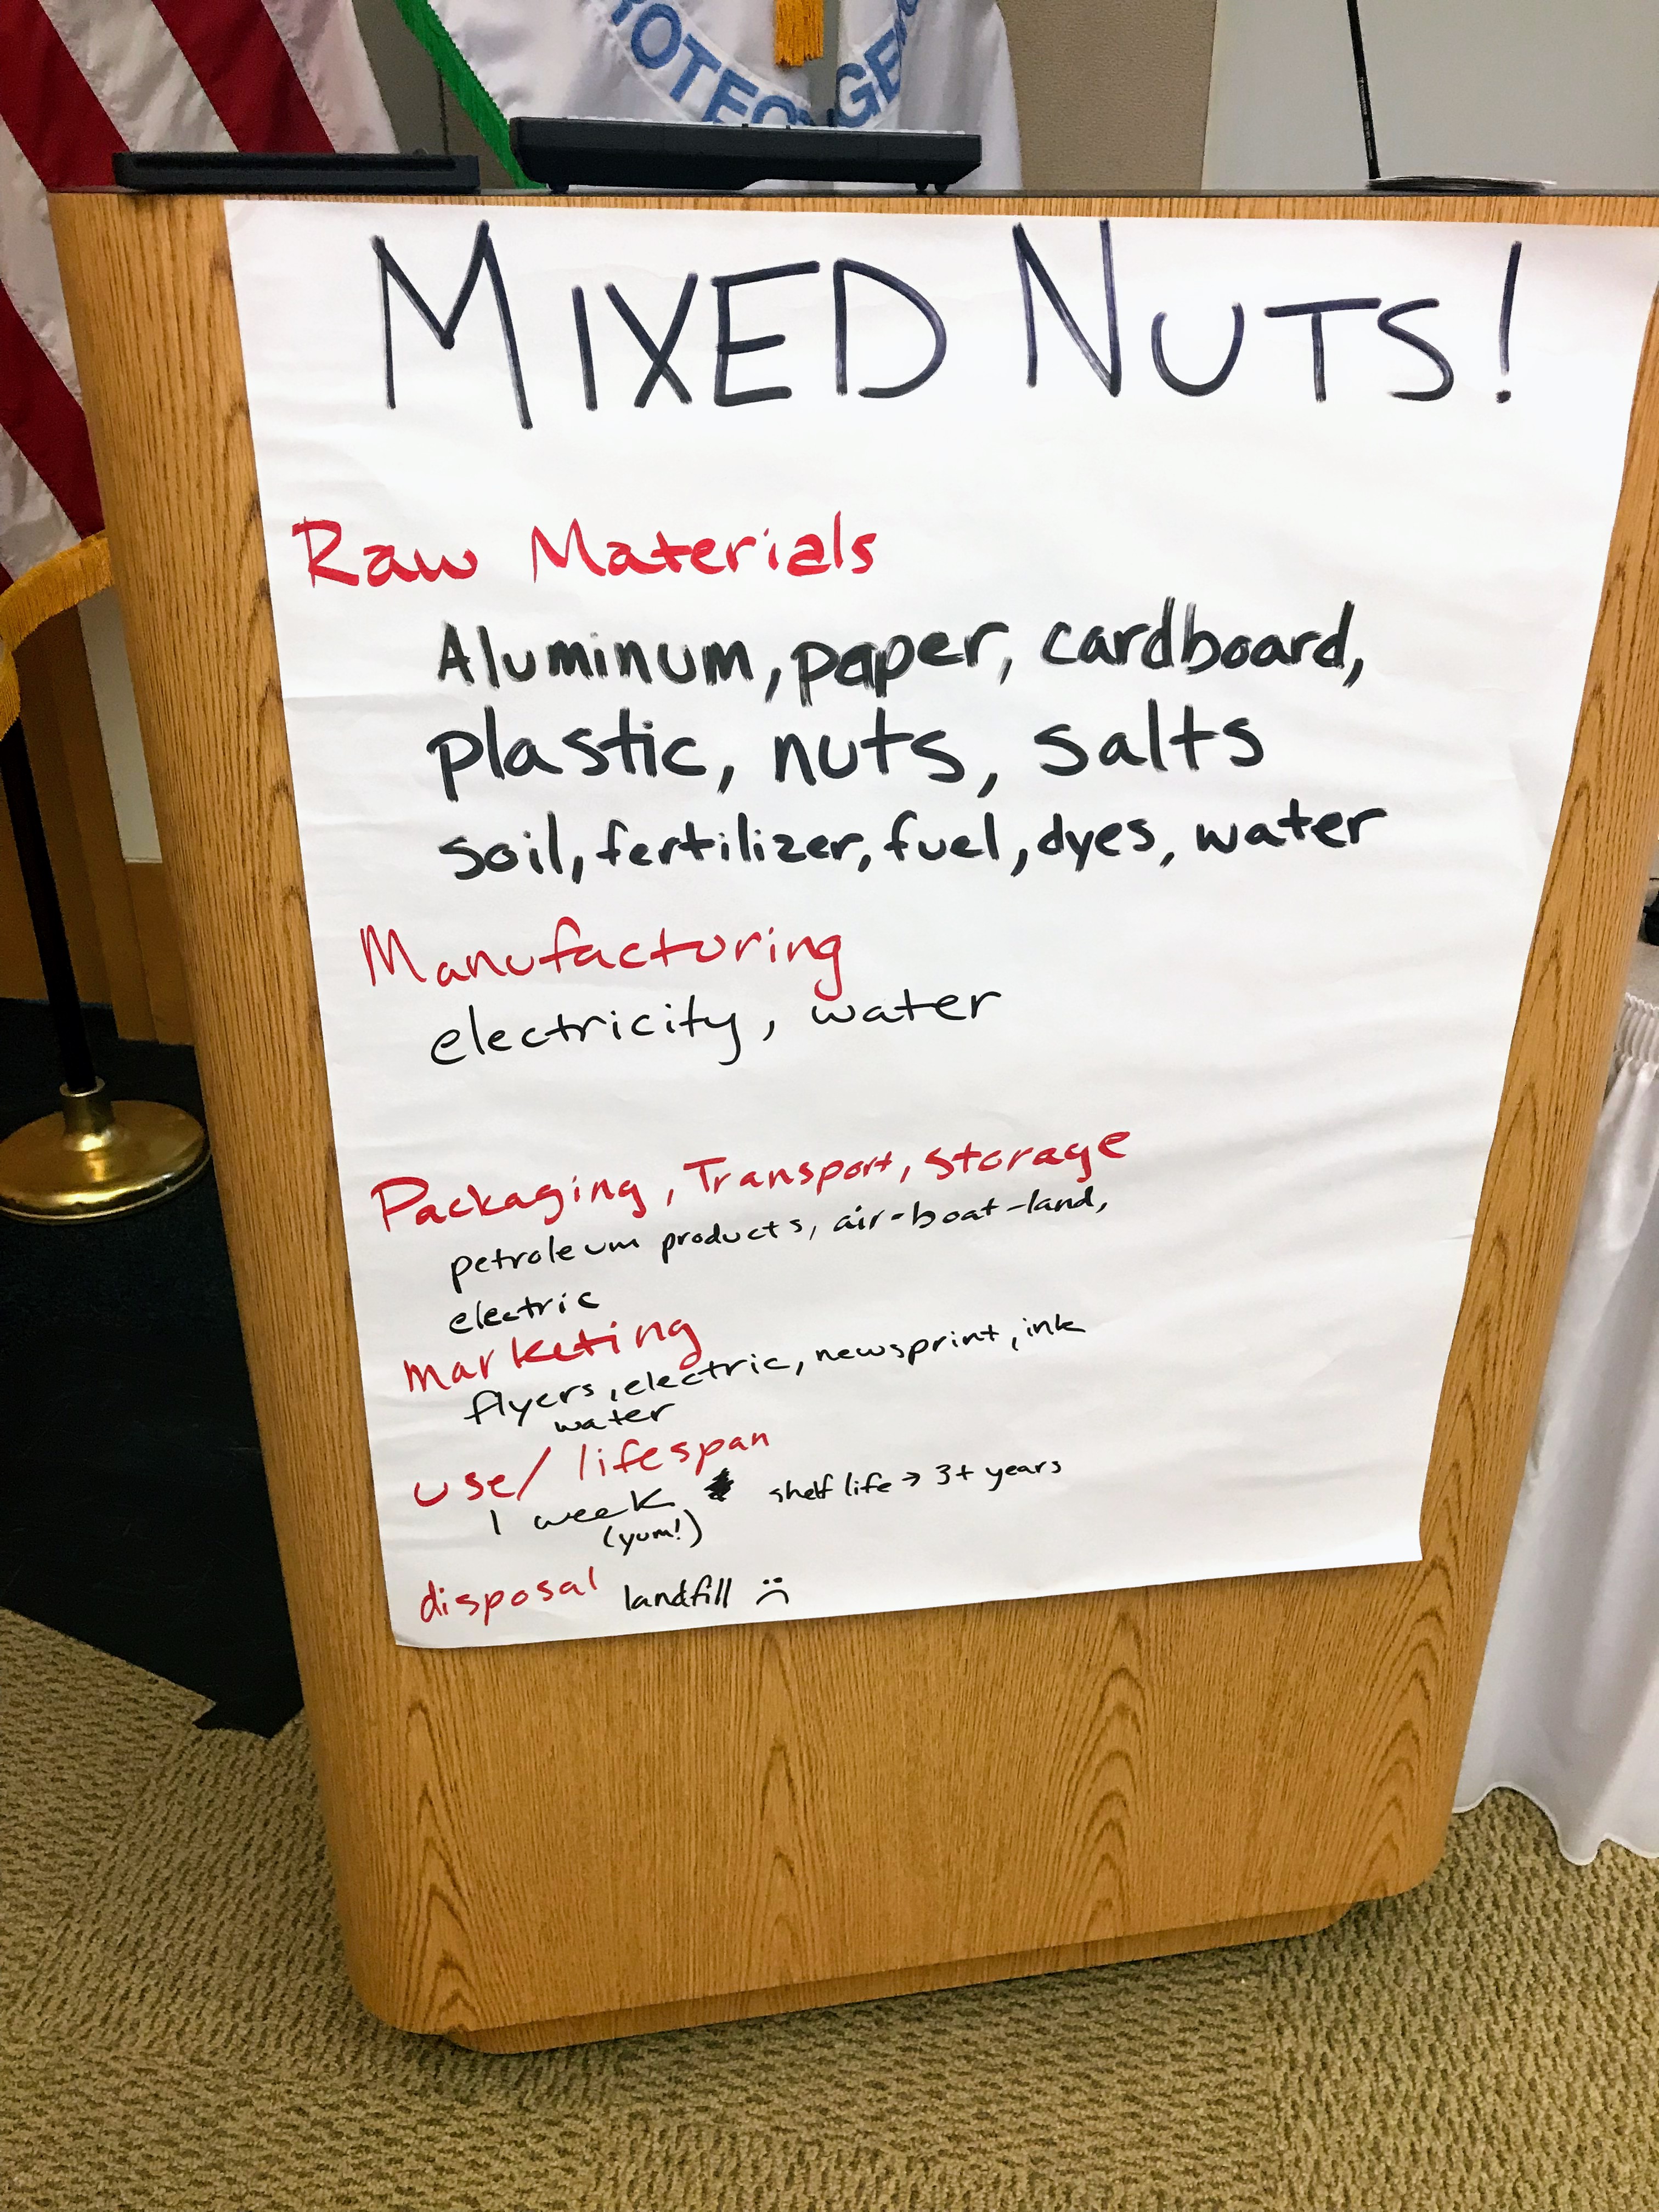 MIXED NUTS!
Raw Materials
Aluminum, paper, cardboard,
plastic, nuts, salts
soil, fertilizer, fuel, dyes, water
Manufacturing
electricity, water
Packaging, Transport, storage
petroleum products, air-boat-land,
electric
marketing
flyers, electric, newsprint, ink
water
use/ lifespan
1 week shelf life → 3+ years
(yum!)
disposal landfill :(